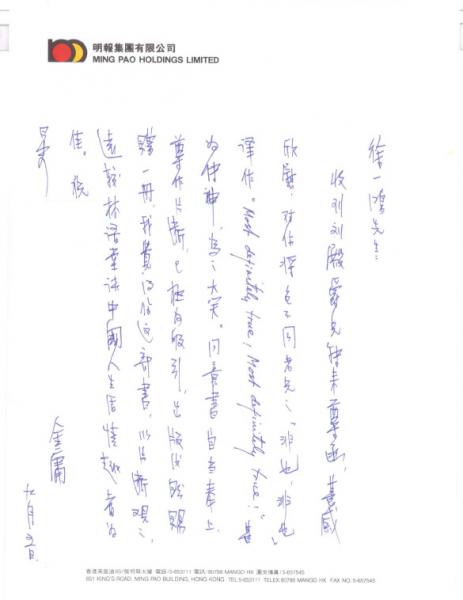 明報集團有限公司
MING PAO HOLDINGS LIMITED
徐一鴻先生:
收到劉殿爵兄轉來尊函,甚感
欣慰,對包不同者先之「非也,非也」
譯作 "Most definitely true, Most definitely true!" 甚
為傳神,為之大笑。同意書自當奉上。
尊作片斷,已極為吸引,出版後盼賜
贈一冊,我覺得你這部書,以片斷觀之,
遠較林語堂談中國人生活情趣者為
佳。祝
金庸
九月五日
香港英皇道651號明報大樓 電話:5-653111 電訊:80788 MANGO HK 圖文傳真:5-657545
651 KING'S ROAD, MING PAO BUILDING, HONG KONG TEL:5-653111 TELEX:80788 MANGO HK FAX NO.:5-657545